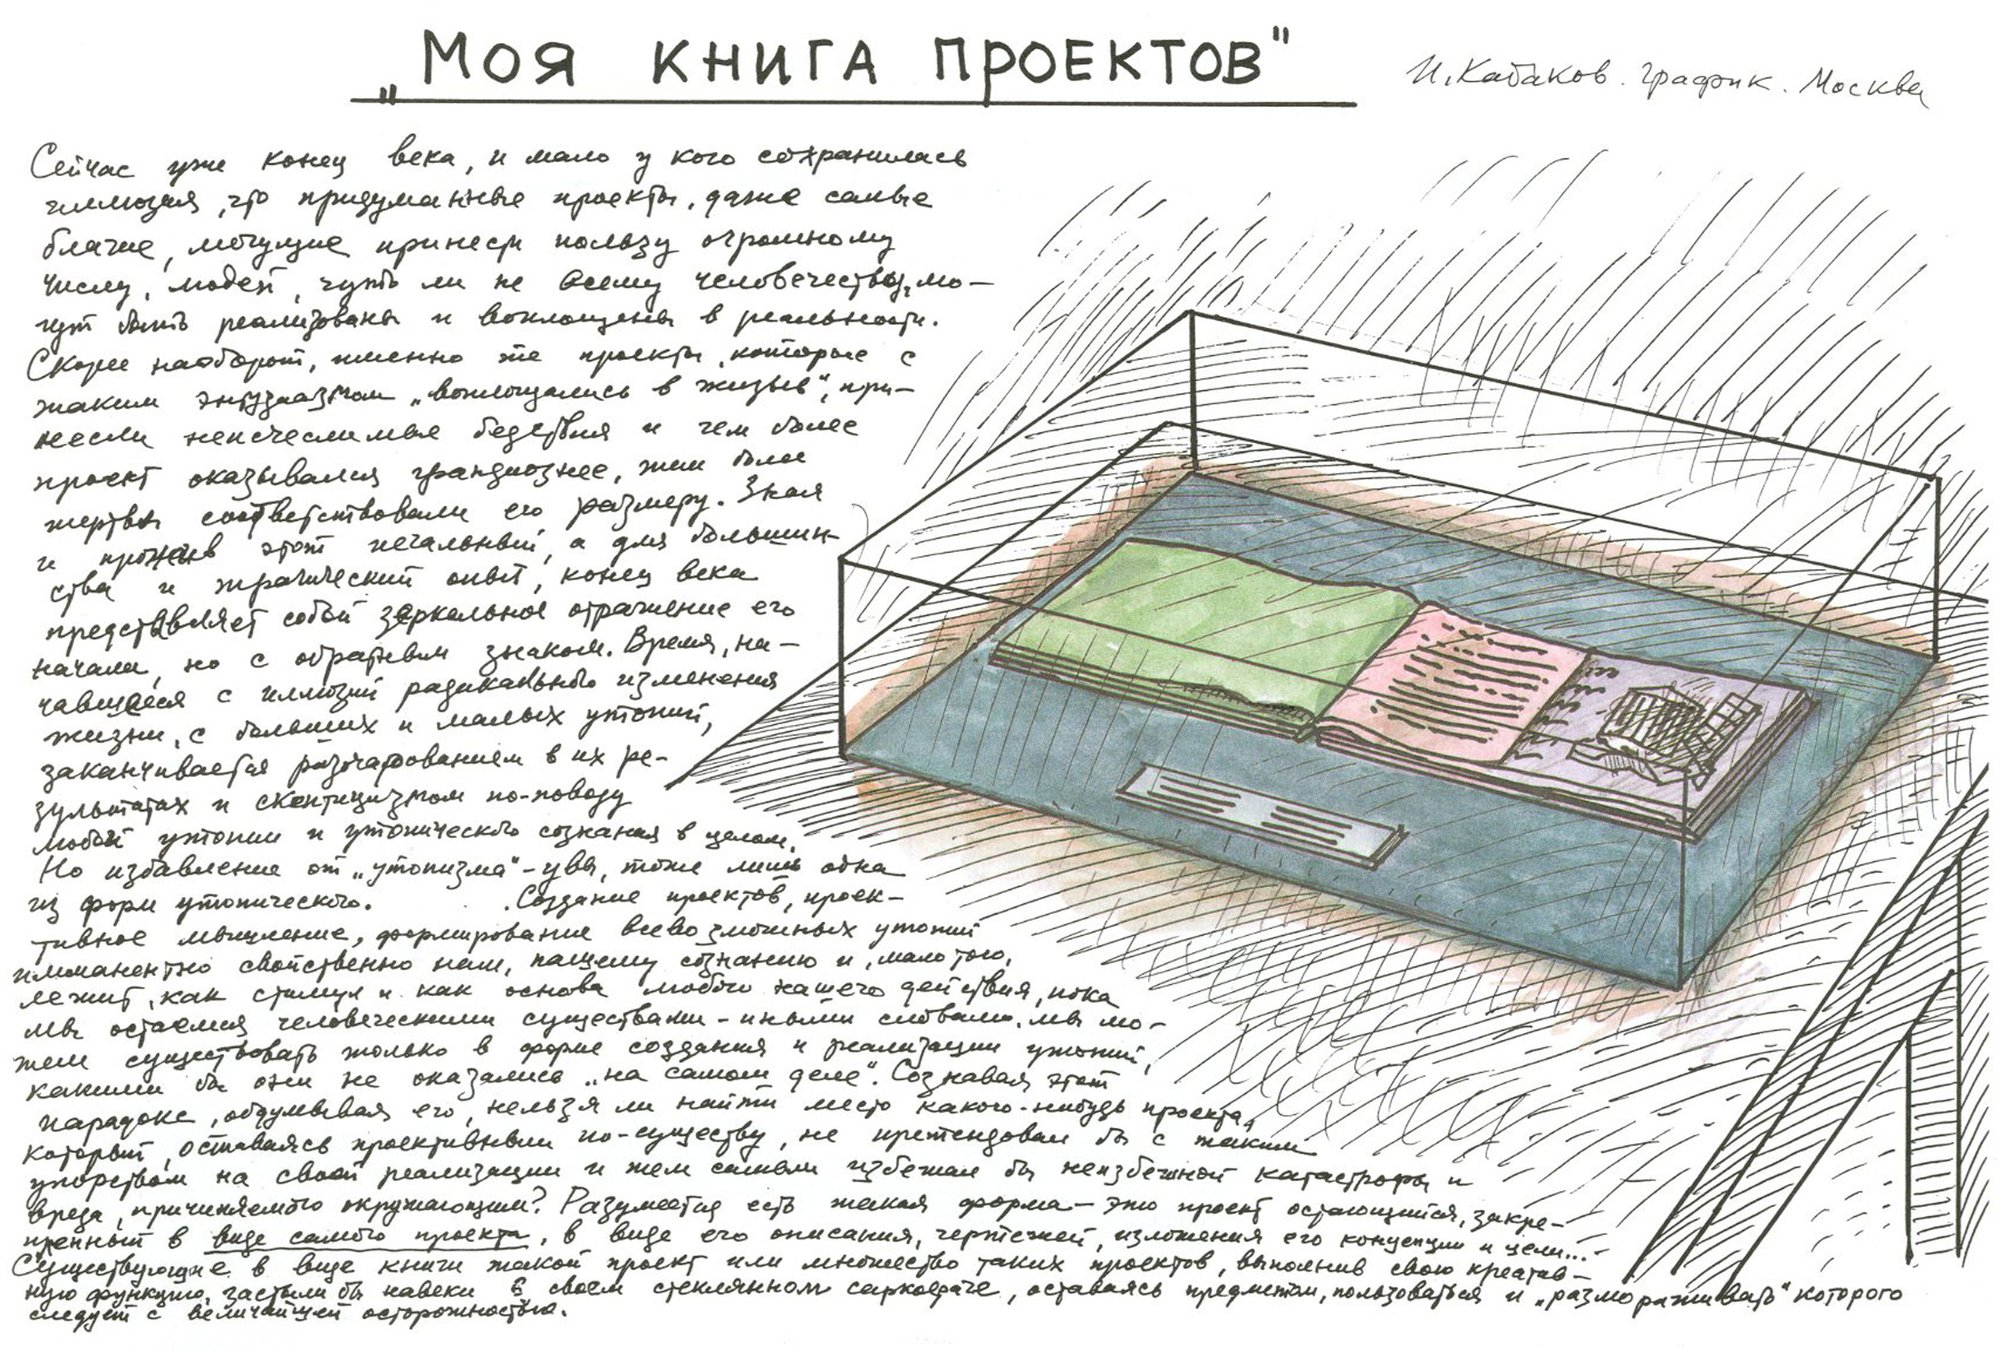 „МОЯ КНИГА ПРОЕКТОВ"
И. Кабаков. график. Москва
Сейчас уже конец века, и мало у кого сохранилась
иллюзия, что придуманные проекты, даже самые
благие, могущие принести пользу огромному
числу, людей, чуть ли не всему человечеству, мо-
гут быть реализованы и воплощены в реальности.
Скорее наоборот, именно те проекты, которые с
таким энтузиазмом „воплощались в жизнь", при-
несли неисчислимые бедствия и чем более
проект оказывался грандиознее, тем более
жертвы соответствовали его размеру. Зная
и прожив этот печальный, а для большин-
ства и трагический опыт, конец века
представляет собой зеркальное отражение его
начала, но с обратным знаком. Время, на-
чавшееся с иллюзий радикального изменения
жизни, с больших и малых утопий,
заканчивается разочарованием в их ре-
зультатах и скептицизмом по-поводу
любой утопии и утопического сознания в целом.
Но избавление от „утопизма" - увы, тоже лишь одна
из форм утопического. Создание проектов, проек-
тивное мышление, формирование всевозможных утопий
имманентно свойственно нам, нашему сознанию и, мало того,
лежит, как стимул и как основа любого нашего действия, пока
мы остаемся человеческими существами - иными словами, мы мо-
жем существовать только в форме создания и реализации утопий,
какими бы они не оказались „на самом деле". Сознавая этот
парадокс, обдумывая его, нельзя ли найти место какого-нибудь проекта,
который, оставаясь проективным по-существу, не претендовал бы с таким
упорством на своей реализации и тем самым избежал бы неизбежной катастрофы и
вреда, причиняемого окружающим? Разумеется есть такая форма - это проект остающийся, закре-
пленный в виде самого проекта, в виде его описания, чертежей, изложения его концепции и цели...-
Существующие в виде книги такой проект или множество таких проектов, выполнив свою креатив-
ную функцию, застыли бы навеки в своем стеклянном саркофаге, оставаясь предметом, пользоваться и „размораживать" которого
следует с величайшей осторожностью.